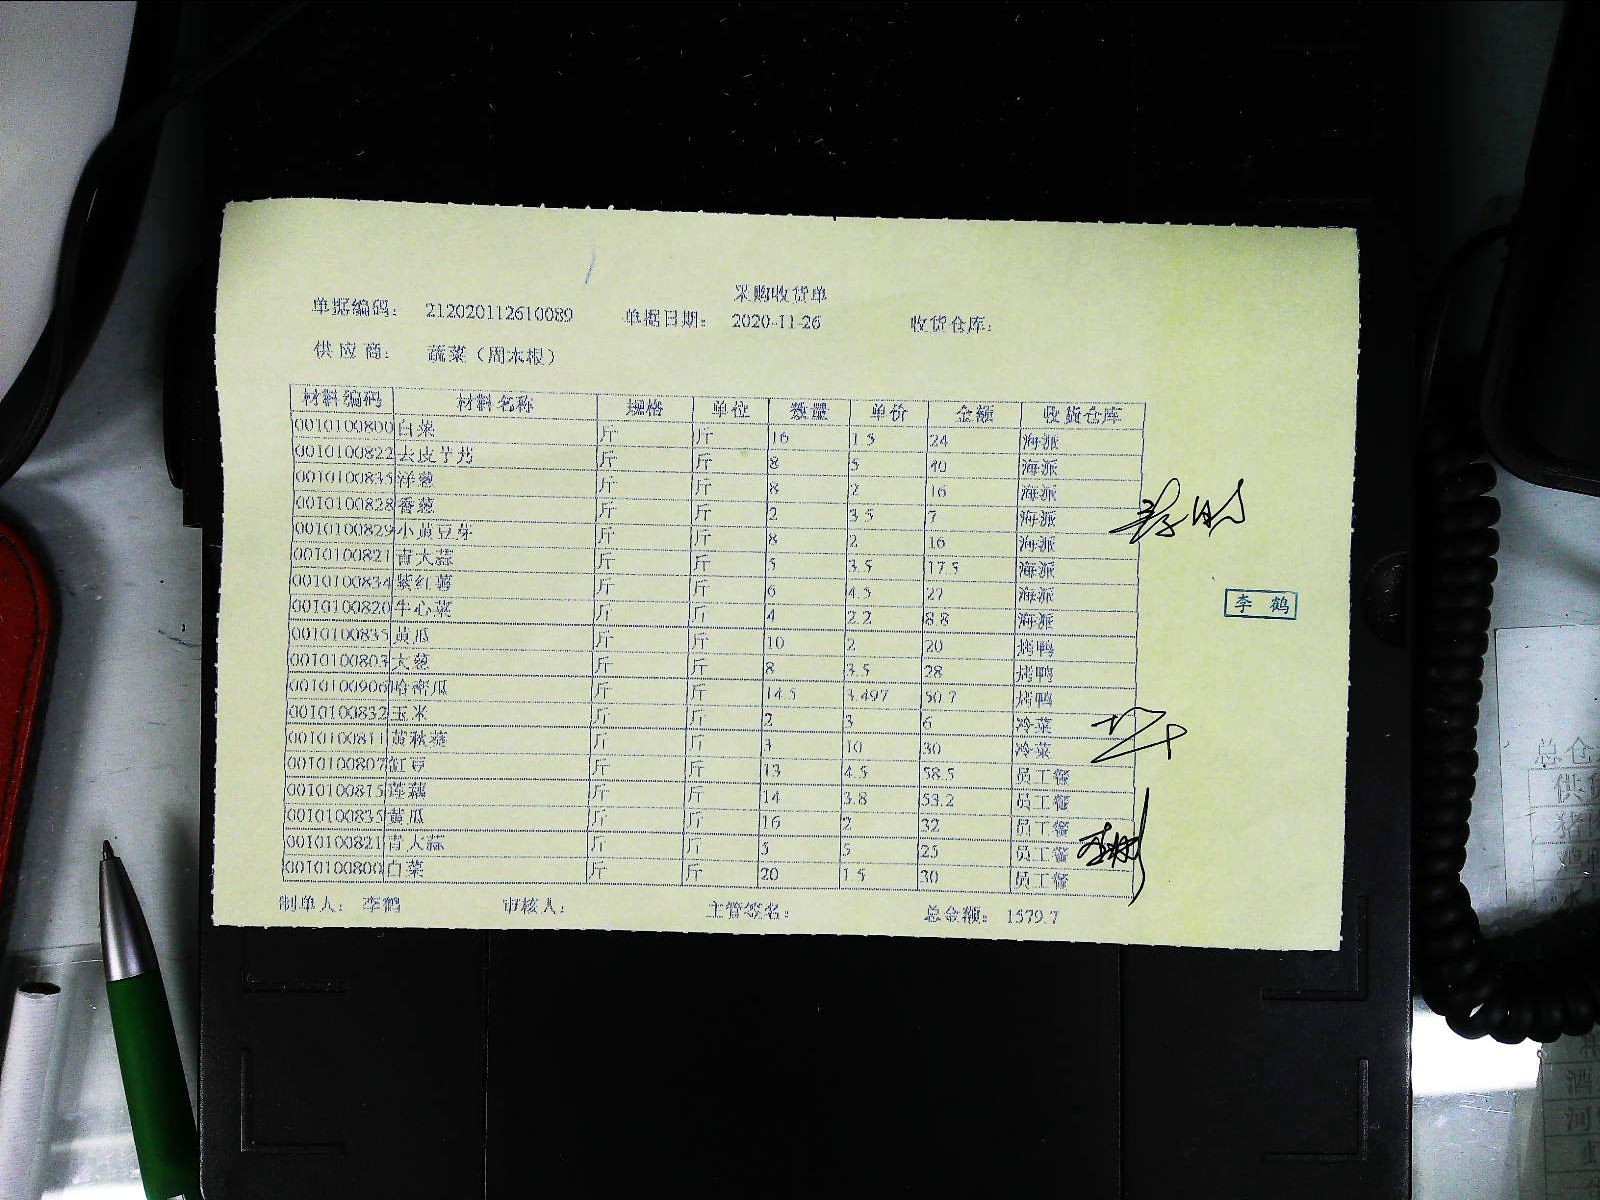 采购收货单
单据编码： 212020112610089 单据日期： 2020-11-26 收货仓库：
供应商： 蔬菜（周本根）
材料编码 材料名称 规格 单位 数量 单价 金额 收货仓库
0010100800 白菜 斤 斤 16 1.5 24 海派
0010100822 去皮芋艿 斤 斤 8 5 40 海派
0010100835 洋葱 斤 斤 8 2 16 海派
0010100828 香葱 斤 斤 2 3.5 7 海派
0010100829 小黄豆芽 斤 斤 8 2 16 海派
0010100821 青大蒜 斤 斤 5 3.5 17.5 海派
0010100834 紫红薯 斤 斤 6 4.5 27 海派
0010100820 牛心菜 斤 斤 4 2.2 8.8 海派
0010100835 黄瓜 斤 斤 10 2 20 烤鸭
0010100803 大葱 斤 斤 8 3.5 28 烤鸭
0010100906 哈密瓜 斤 斤 14.5 3.497 50.7 烤鸭
0010100832 玉米 斤 斤 2 3 6 冷菜
0010100811 黄秋葵 斤 斤 3 10 30 冷菜
0010100807 豇豆 斤 斤 13 4.5 58.5 员工餐
0010100815 莲藕 斤 斤 14 3.8 53.2 员工餐
0010100835 黄瓜 斤 斤 16 2 32 员工餐
0010100821 青大蒜 斤 斤 5 5 25 员工餐
0010100800 白菜 斤 斤 20 1.5 30 员工餐
制单人： 李鹤 审核人： 主管签名： 总金额： 1579.7
李 鹤
总仓